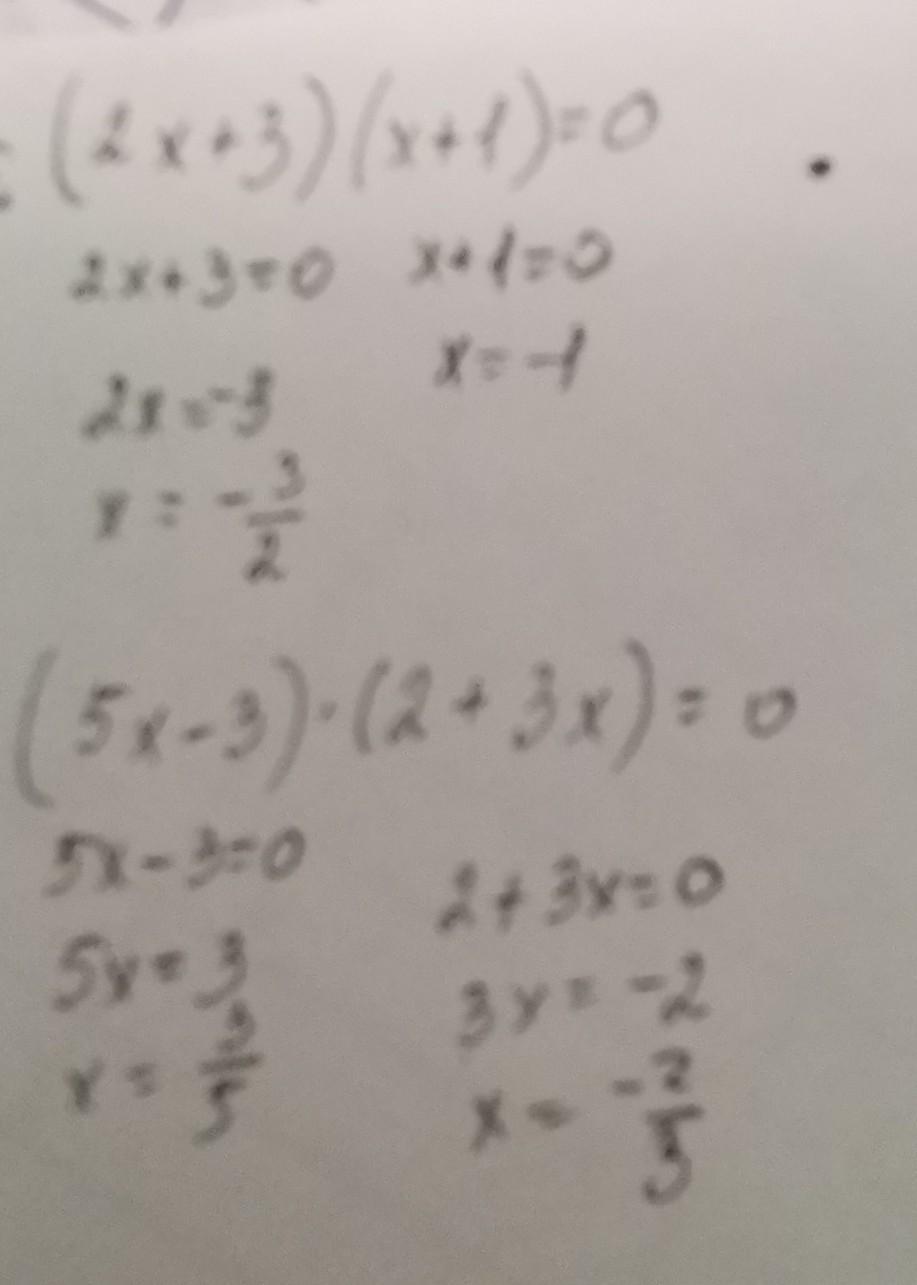 (2x+3)(x+1)=0
2x+3=0 x+1=0
x=-1
2x=-3
x = -3/2
(5x-3)·(2+3x)=0
5x-3=0
2+3x=0
5x=3
3x=-2
x = 3/5
x = -2/3